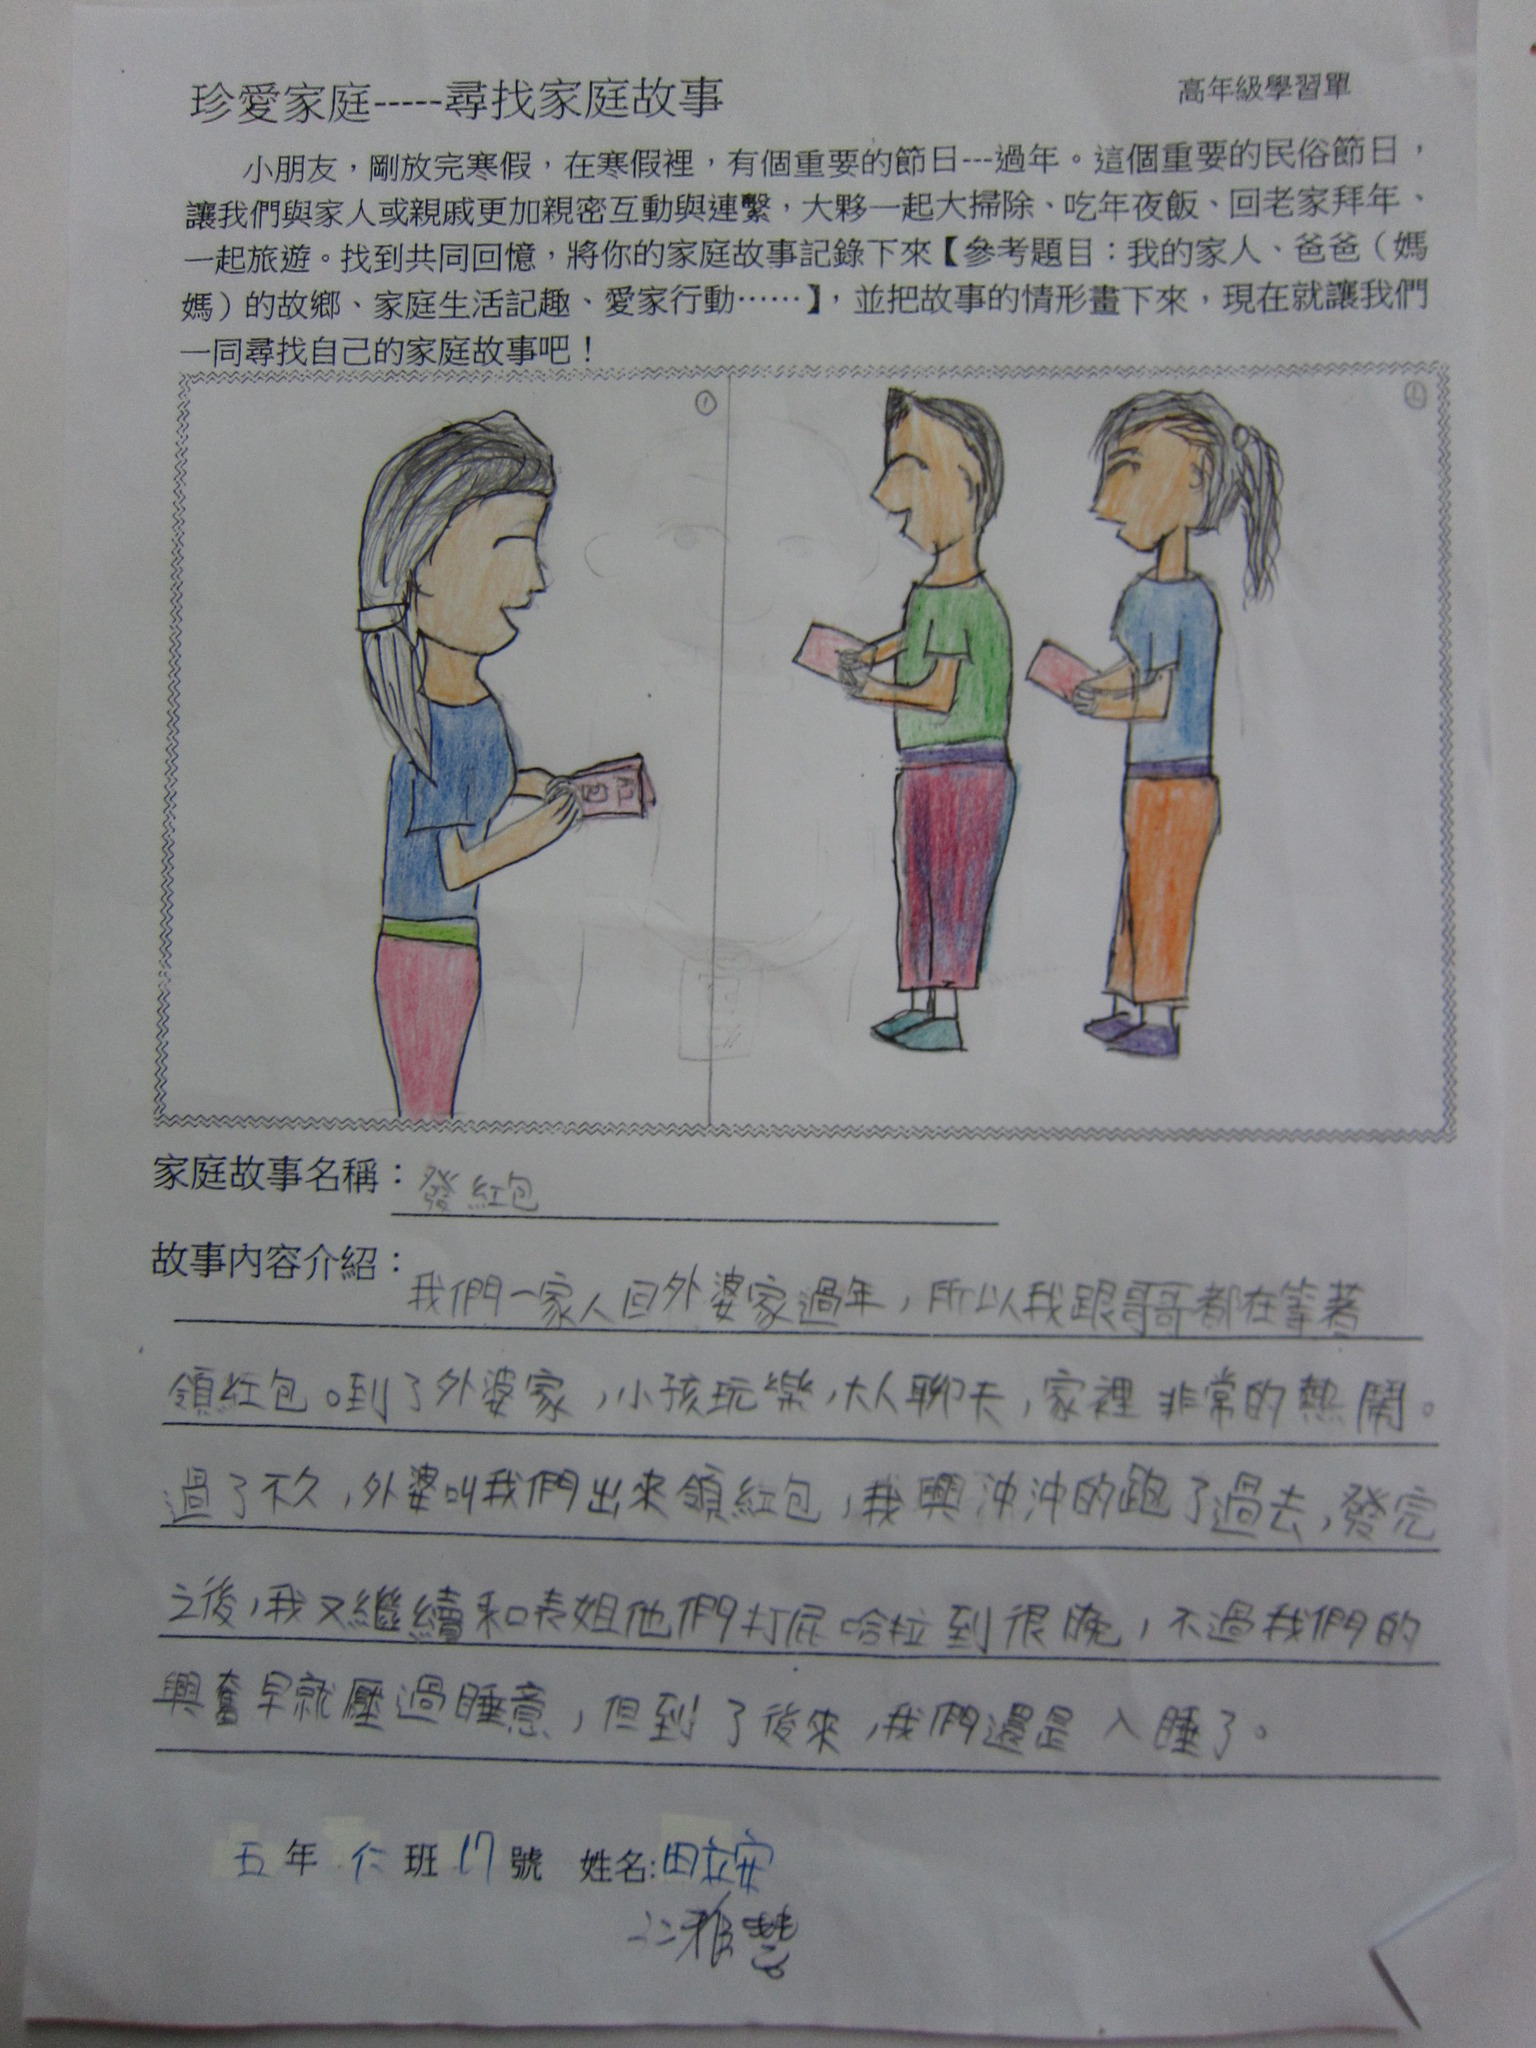 珍愛家庭-----尋找家庭故事
高年級學習單
小朋友，剛放完寒假，在寒假裡，有個重要的節日---過年。這個重要的民俗節日，
讓我們與家人或親戚更加親密互動與連繫，大夥一起大掃除、吃年夜飯、回老家拜年、
一起旅遊。找到共同回憶，將你的家庭故事記錄下來【參考題目：我的家人、爸爸（媽
媽）的故鄉、家庭生活記趣、愛家行動……】，並把故事的情形畫下來，現在就讓我們
一同尋找自己的家庭故事吧！
①
②
紅包
家庭故事名稱：發紅包
故事內容介紹：我們一家人回外婆家過年，所以我跟哥哥都在等著
領紅包。到了外婆家，小孩玩樂，大人聊天，家裡非常的熱鬧。
過了不久，外婆叫我們出來領紅包，我興沖沖的跑了過去，發完
之後，我又繼續和表姐他們打屁哈拉到很晚，不過我們的
興奮早就壓過睡意，但到了後來，我們還是入睡了。
五年仁班17號 姓名:田立安